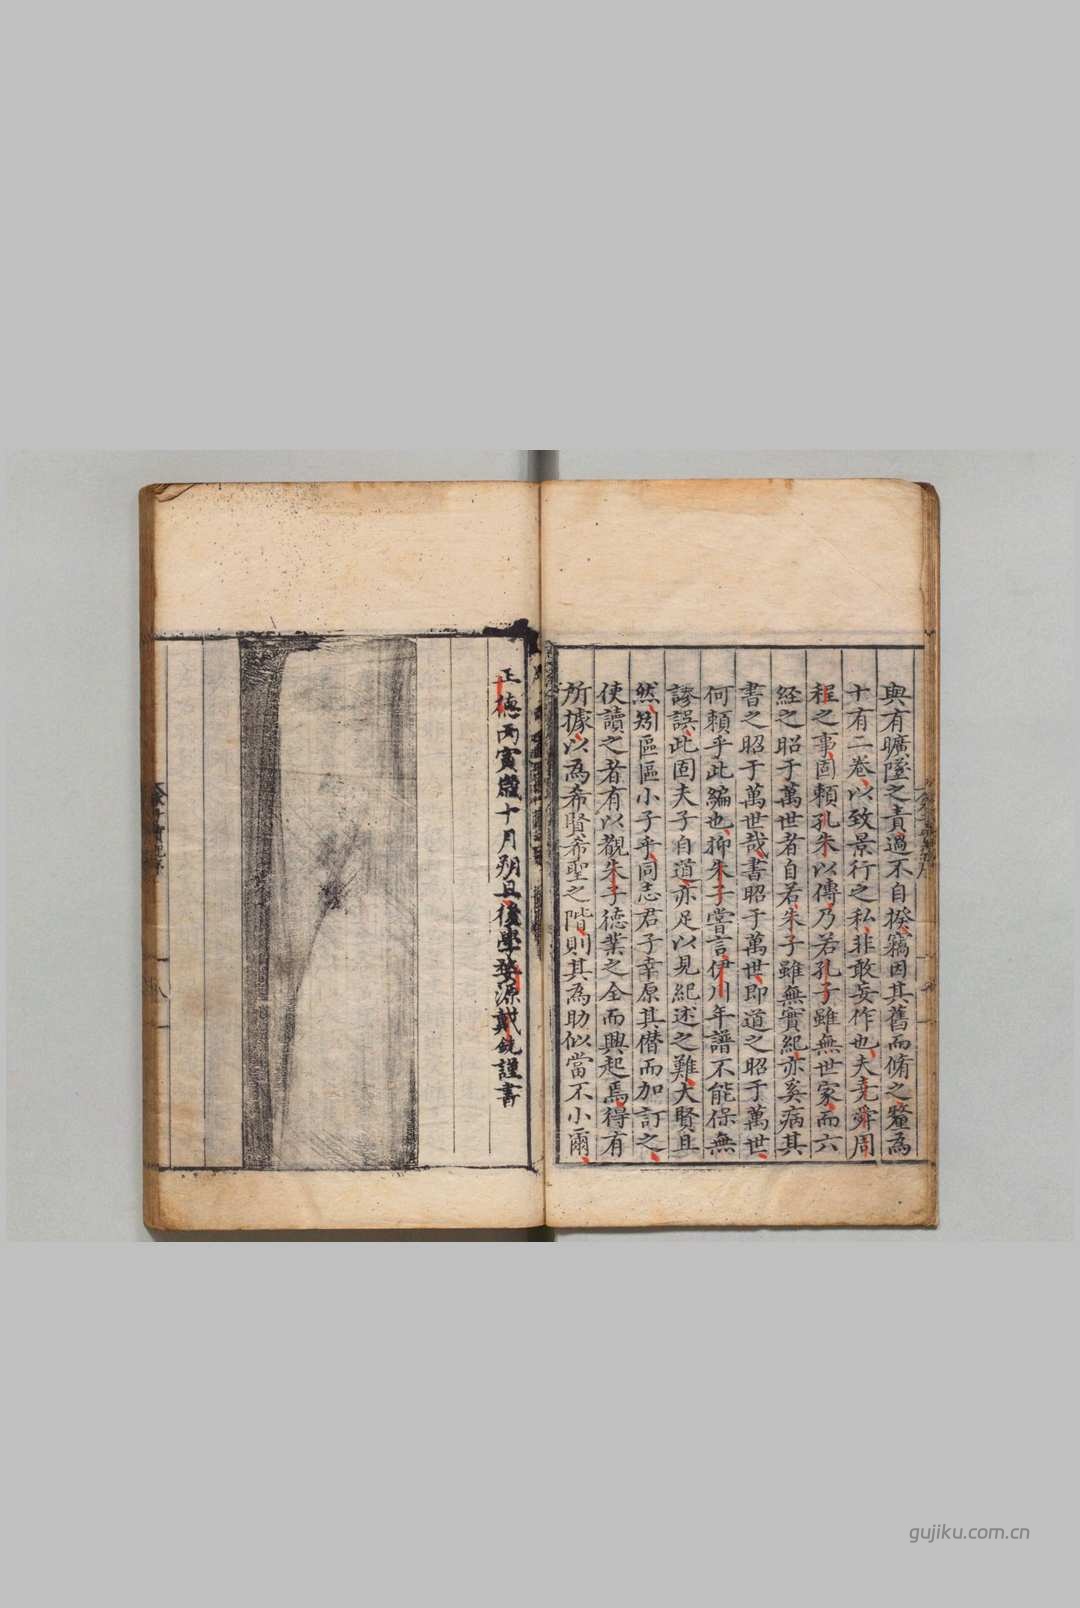 與有曠墜之責過不自揆竊因其舊而脩之釐為
十有二卷以致景行之私非敢妄作也夫堯舜周
程之事固賴孔朱以傳乃若孔子雖無世家而六
經之昭于萬世者自若朱子雖無實紀亦奚病其
書之昭于萬世哉書昭于萬世即道之昭于萬世
何賴乎此編也抑朱子嘗言伊川年譜不能保無
謬誤此固夫子自道亦足以見紀述之難大賢且
然矧區區小子乎同志君子幸原其僣而加訂之
使讀之者有以觀朱子德業之全而興起焉得有
所據以為希賢希聖之階則其為助似當不小爾
正德丙寅歲十月朔旦後學婺源戴銑謹書
gujiku.com.cn